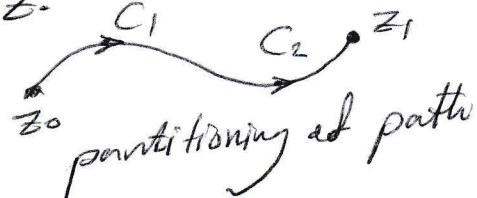 z.
C₁
C₂
z₁
z₀
partitioning of path